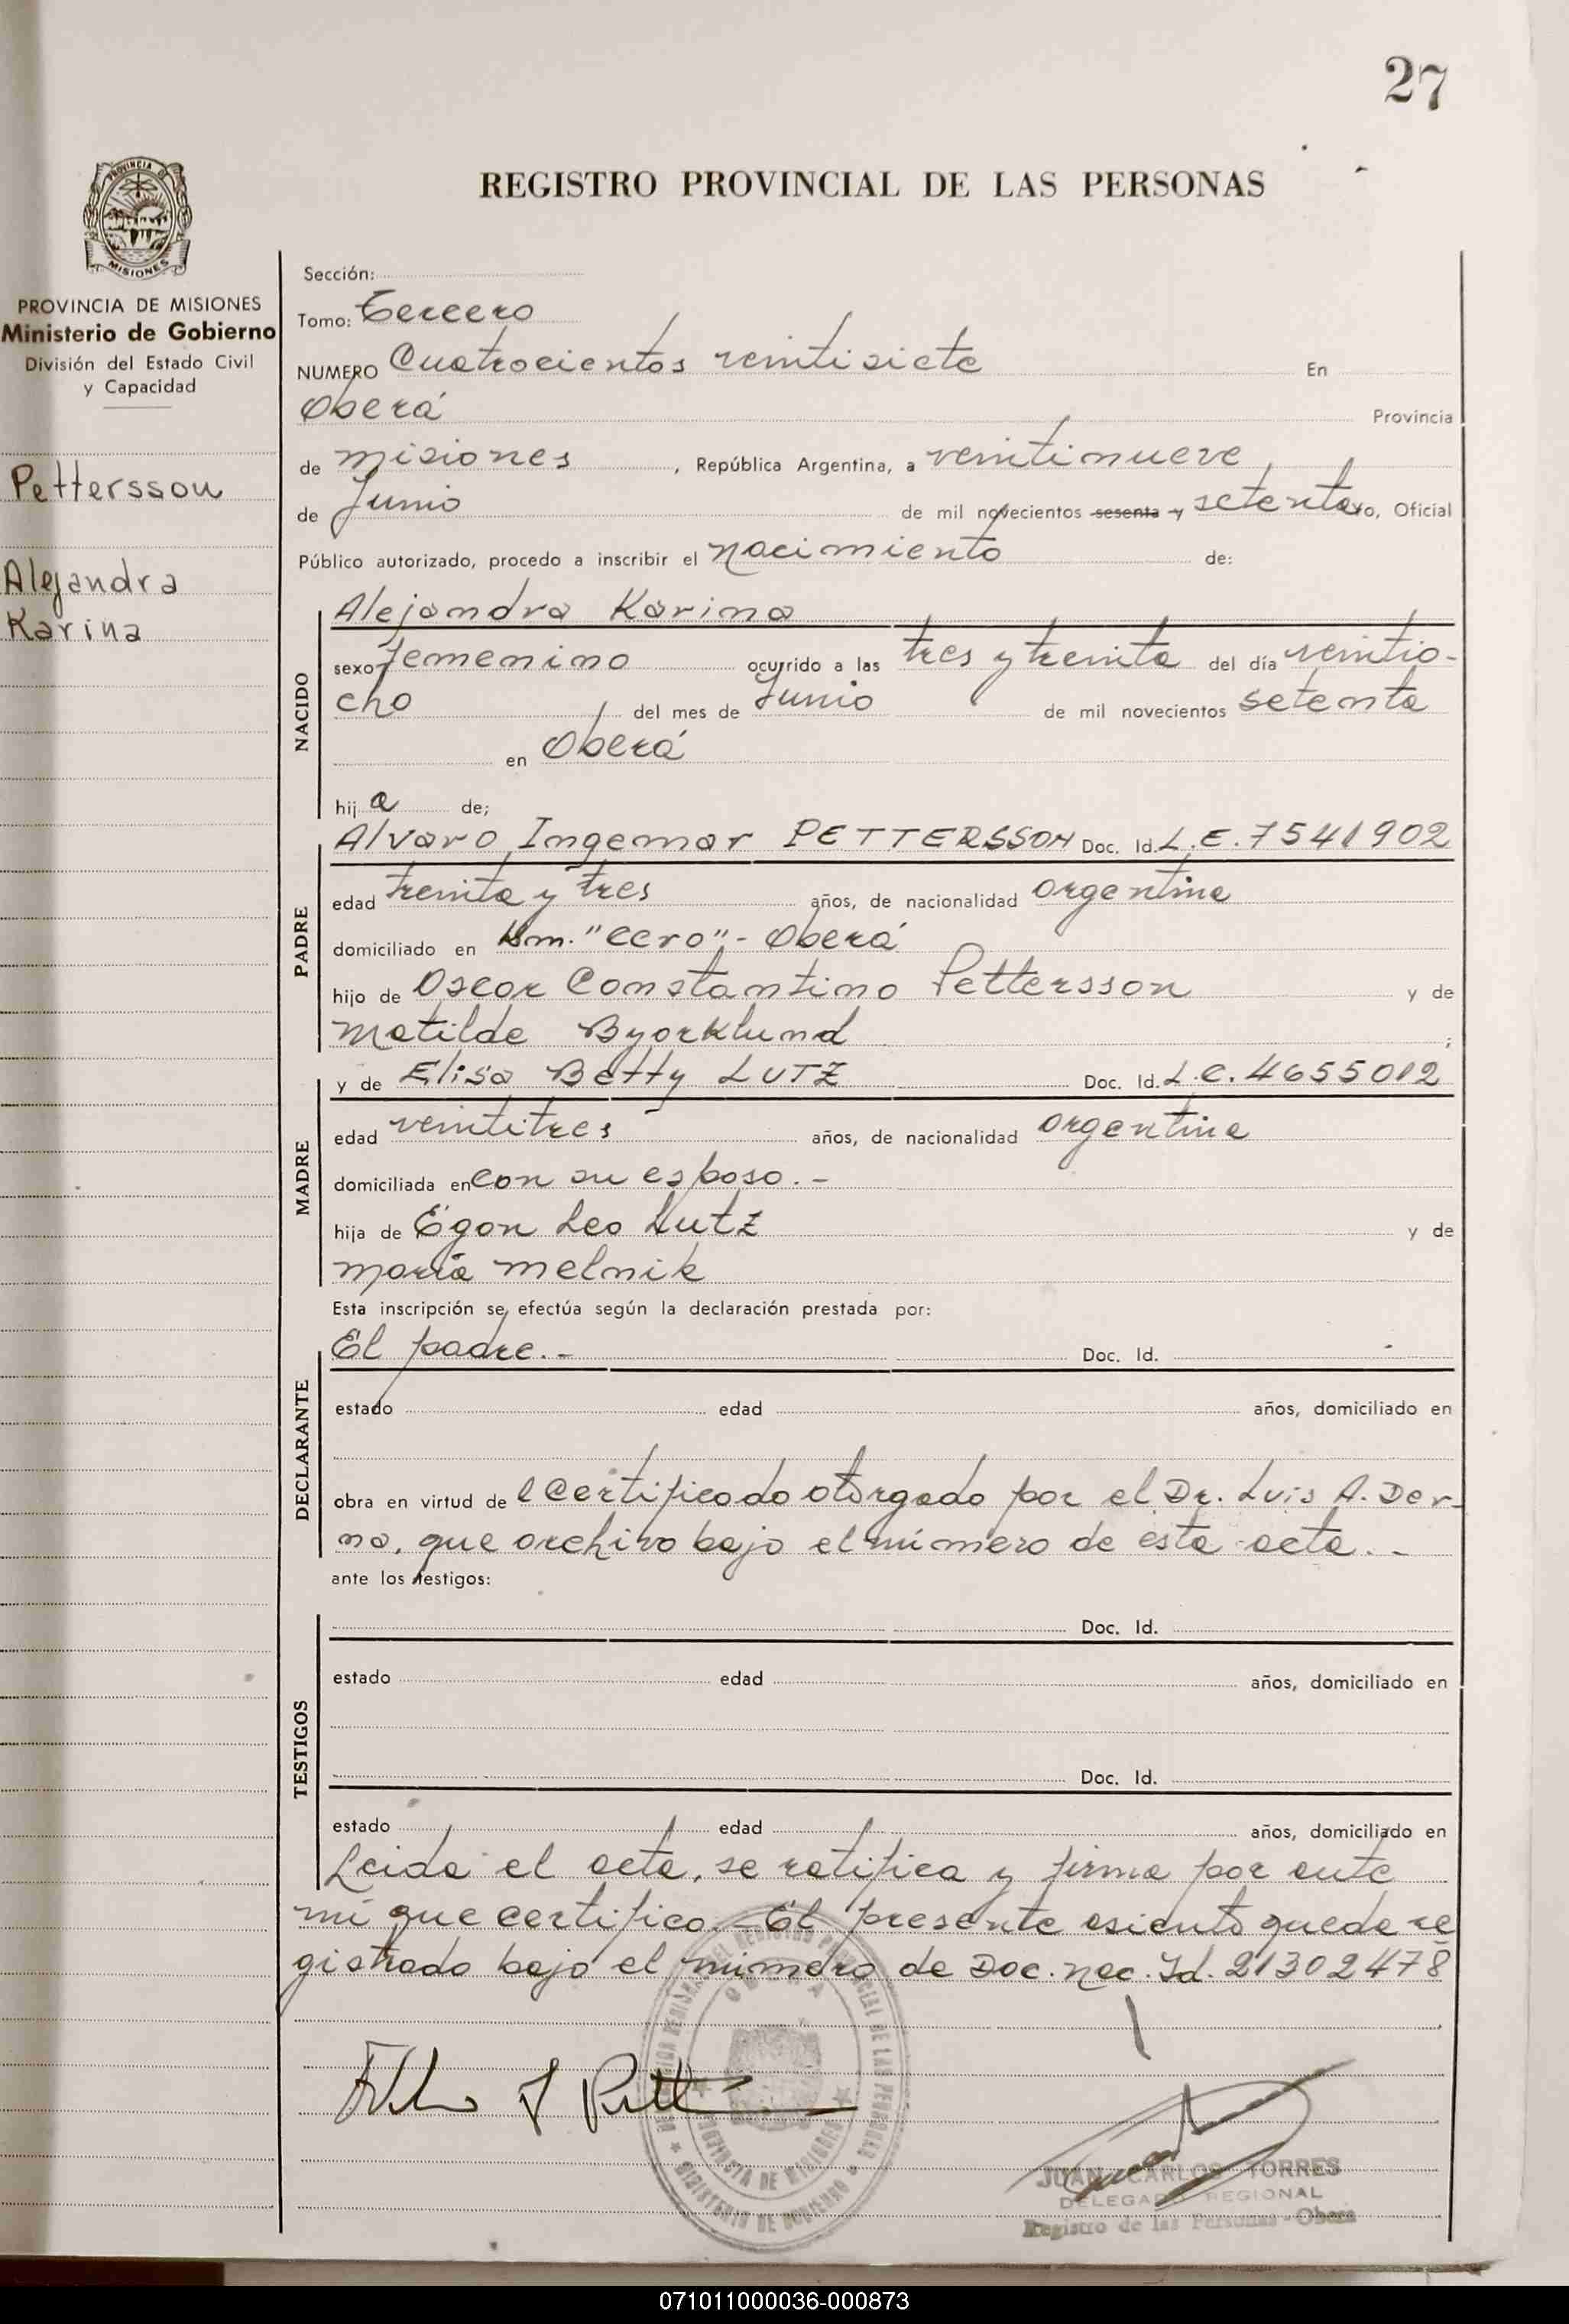 27
REGISTRO PROVINCIAL DE LAS PERSONAS
PROVINCIA DE
MISIONES
PROVINCIA DE MISIONES
Ministerio de Gobierno
División del Estado Civil
y Capacidad
Pettersson
Alejandra
Karina
Sección:
Tomo: Tercero
NUMERO Cuatrocientos veintisiete En
Oberá Provincia
de misiones, República Argentina, a veintinueve
de Junio de mil novecientos sesenta y setenta yo, Oficial
Público autorizado, procedo a inscribir el nacimiento de:
NACIDO
Alejandra Karina
sexo femenino ocurrido a las tres y treinta del día veintio-
cho del mes de Junio de mil novecientos setenta
en Oberá
hija de;
PADRE
Alvaro Ingemar PETTERSSON Doc. Id. L.E. 7541902
edad treinta y tres años, de nacionalidad argentina
domiciliado en Km. "cero" - Oberá
hijo de Oscar Constantino Pettersson y de
Matilde Byorklund;
MADRE
y de Elisa Betty LUTZ Doc. Id. L.C. 4655012
edad veintitres años, de nacionalidad argentina
domiciliada en con su esposo.-
hija de Egon Leo Lutz y de
María Melnik
Esta inscripción se efectúa según la declaración prestada por:
DECLARANTE
El padre.- Doc. Id.
estado edad años, domiciliado en
obra en virtud de l certificado otorgado por el Dr. Luis A. Der-
na, que archivo bajo el número de esta acta.-
ante los testigos:
TESTIGOS
Doc. Id.
estado edad años, domiciliado en
Doc. Id.
estado edad años, domiciliado en
Leida el acta, se ratifica y firma por ante
mí que certifico.- El presente asiento queda re
gistrado bajo el número de Doc. nac. Id. 21302478
JUAN CARLOS TORRES
DELEGADO REGIONAL
Registro de las Personas - Oberá
071011000036-000873